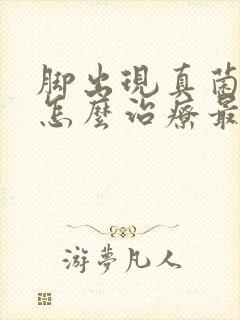 脚出現真菌
怎麼治療最
游夢凡人